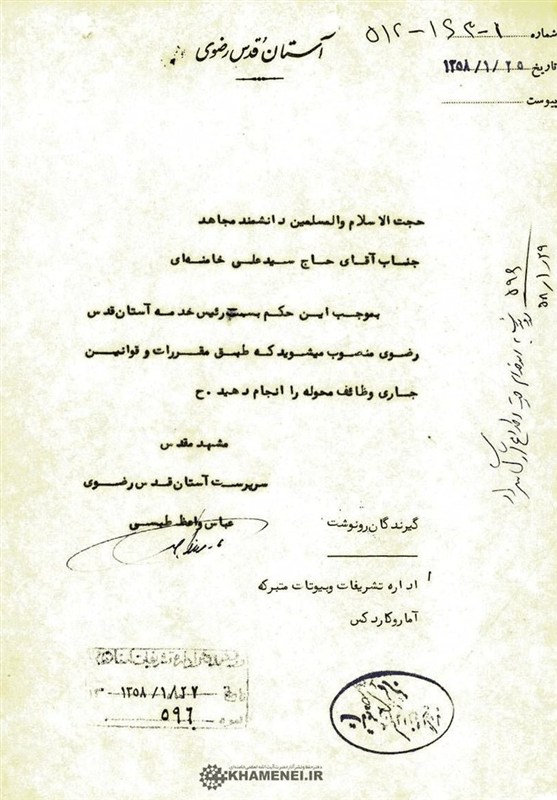 آستان قدس رضوی
شماره ۱-۱۶۳-۵۱۲
تاریخ ۱۳۵۸/۱/۲۵
پیوست
حجت الاسلام والمسلمین دانشمند مجاهد
جناب آقای حاج سیدعلی خامنه‌ای
بموجب این حکم بسمت رئیس خدمه آستان‌قدس
رضوی منصوب میشوید که طبق مقررات و قوانین
جاری وظائف محوله را انجام دهید .ح
مشهد مقدس
سرپرست آستان‌قدس رضوی
عباس واعظ طبسی
گیرندگان رونوشت
اداره تشریفات وبیوتات متبرکه
آماروکاردکس
۵۹۶
۵۸/۱/۲۹
تاریخ ۱۳۵۸/۱/۲۷
۵۹۶
KHAMENEI.IR